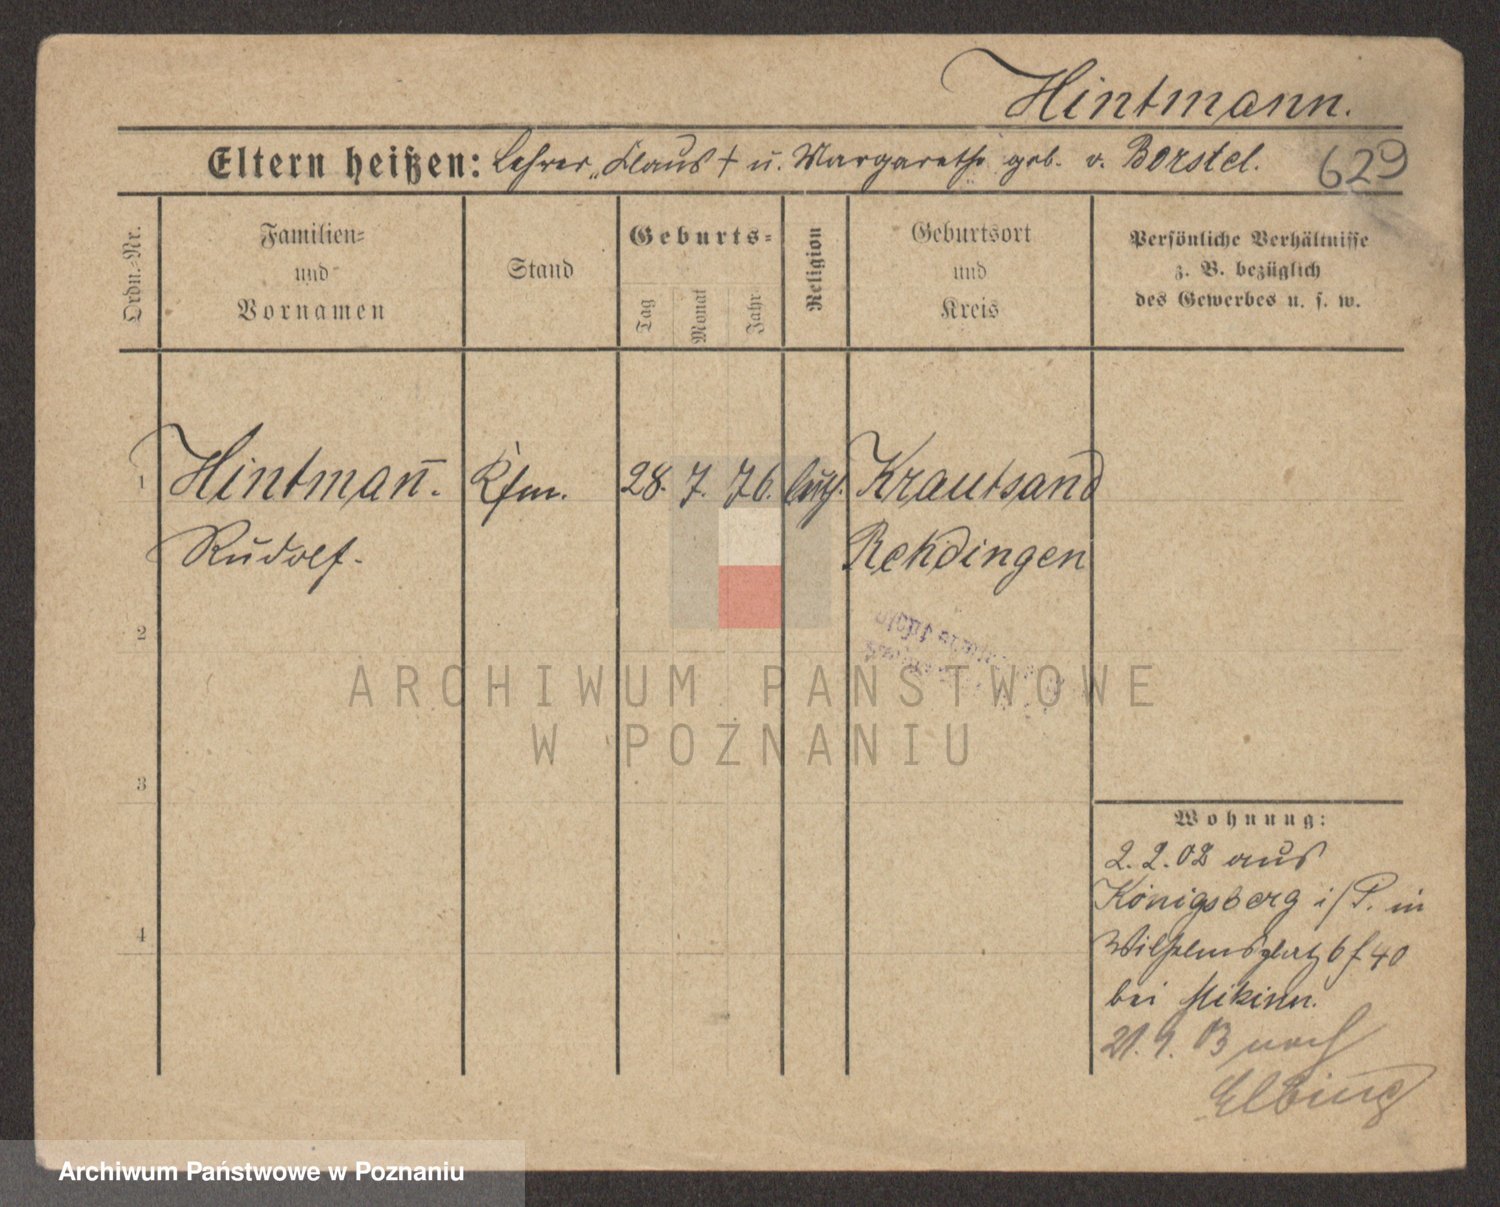 Hintmann.
Eltern heißen: Lehrer „Klaus † u. Margarethe" geb. v. Borstel.
629
Ordn.-Nr.
Familien-
und
Vornamen
Stand
Geburts-
Tag
Monat
Jahr
Religion
Geburtsort
und
Kreis
Persönliche Verhältnisse
z. B. bezüglich
des Gewerbes u. s. w.
1 Hintman̄. Kfm. 28. 7. 76. luth. Krautsand
Rudolf. Kehdingen
2
ARCHIWUM PAŃSTWOWE
W POZNANIU
3
Wohnung:
2. 2. 02 aus
Königsberg i/P. in
4
Wilhelmsplatz 6 f 40
bei
21. 9. 03 nach
Elbing
Archiwum Państwowe w Poznaniu